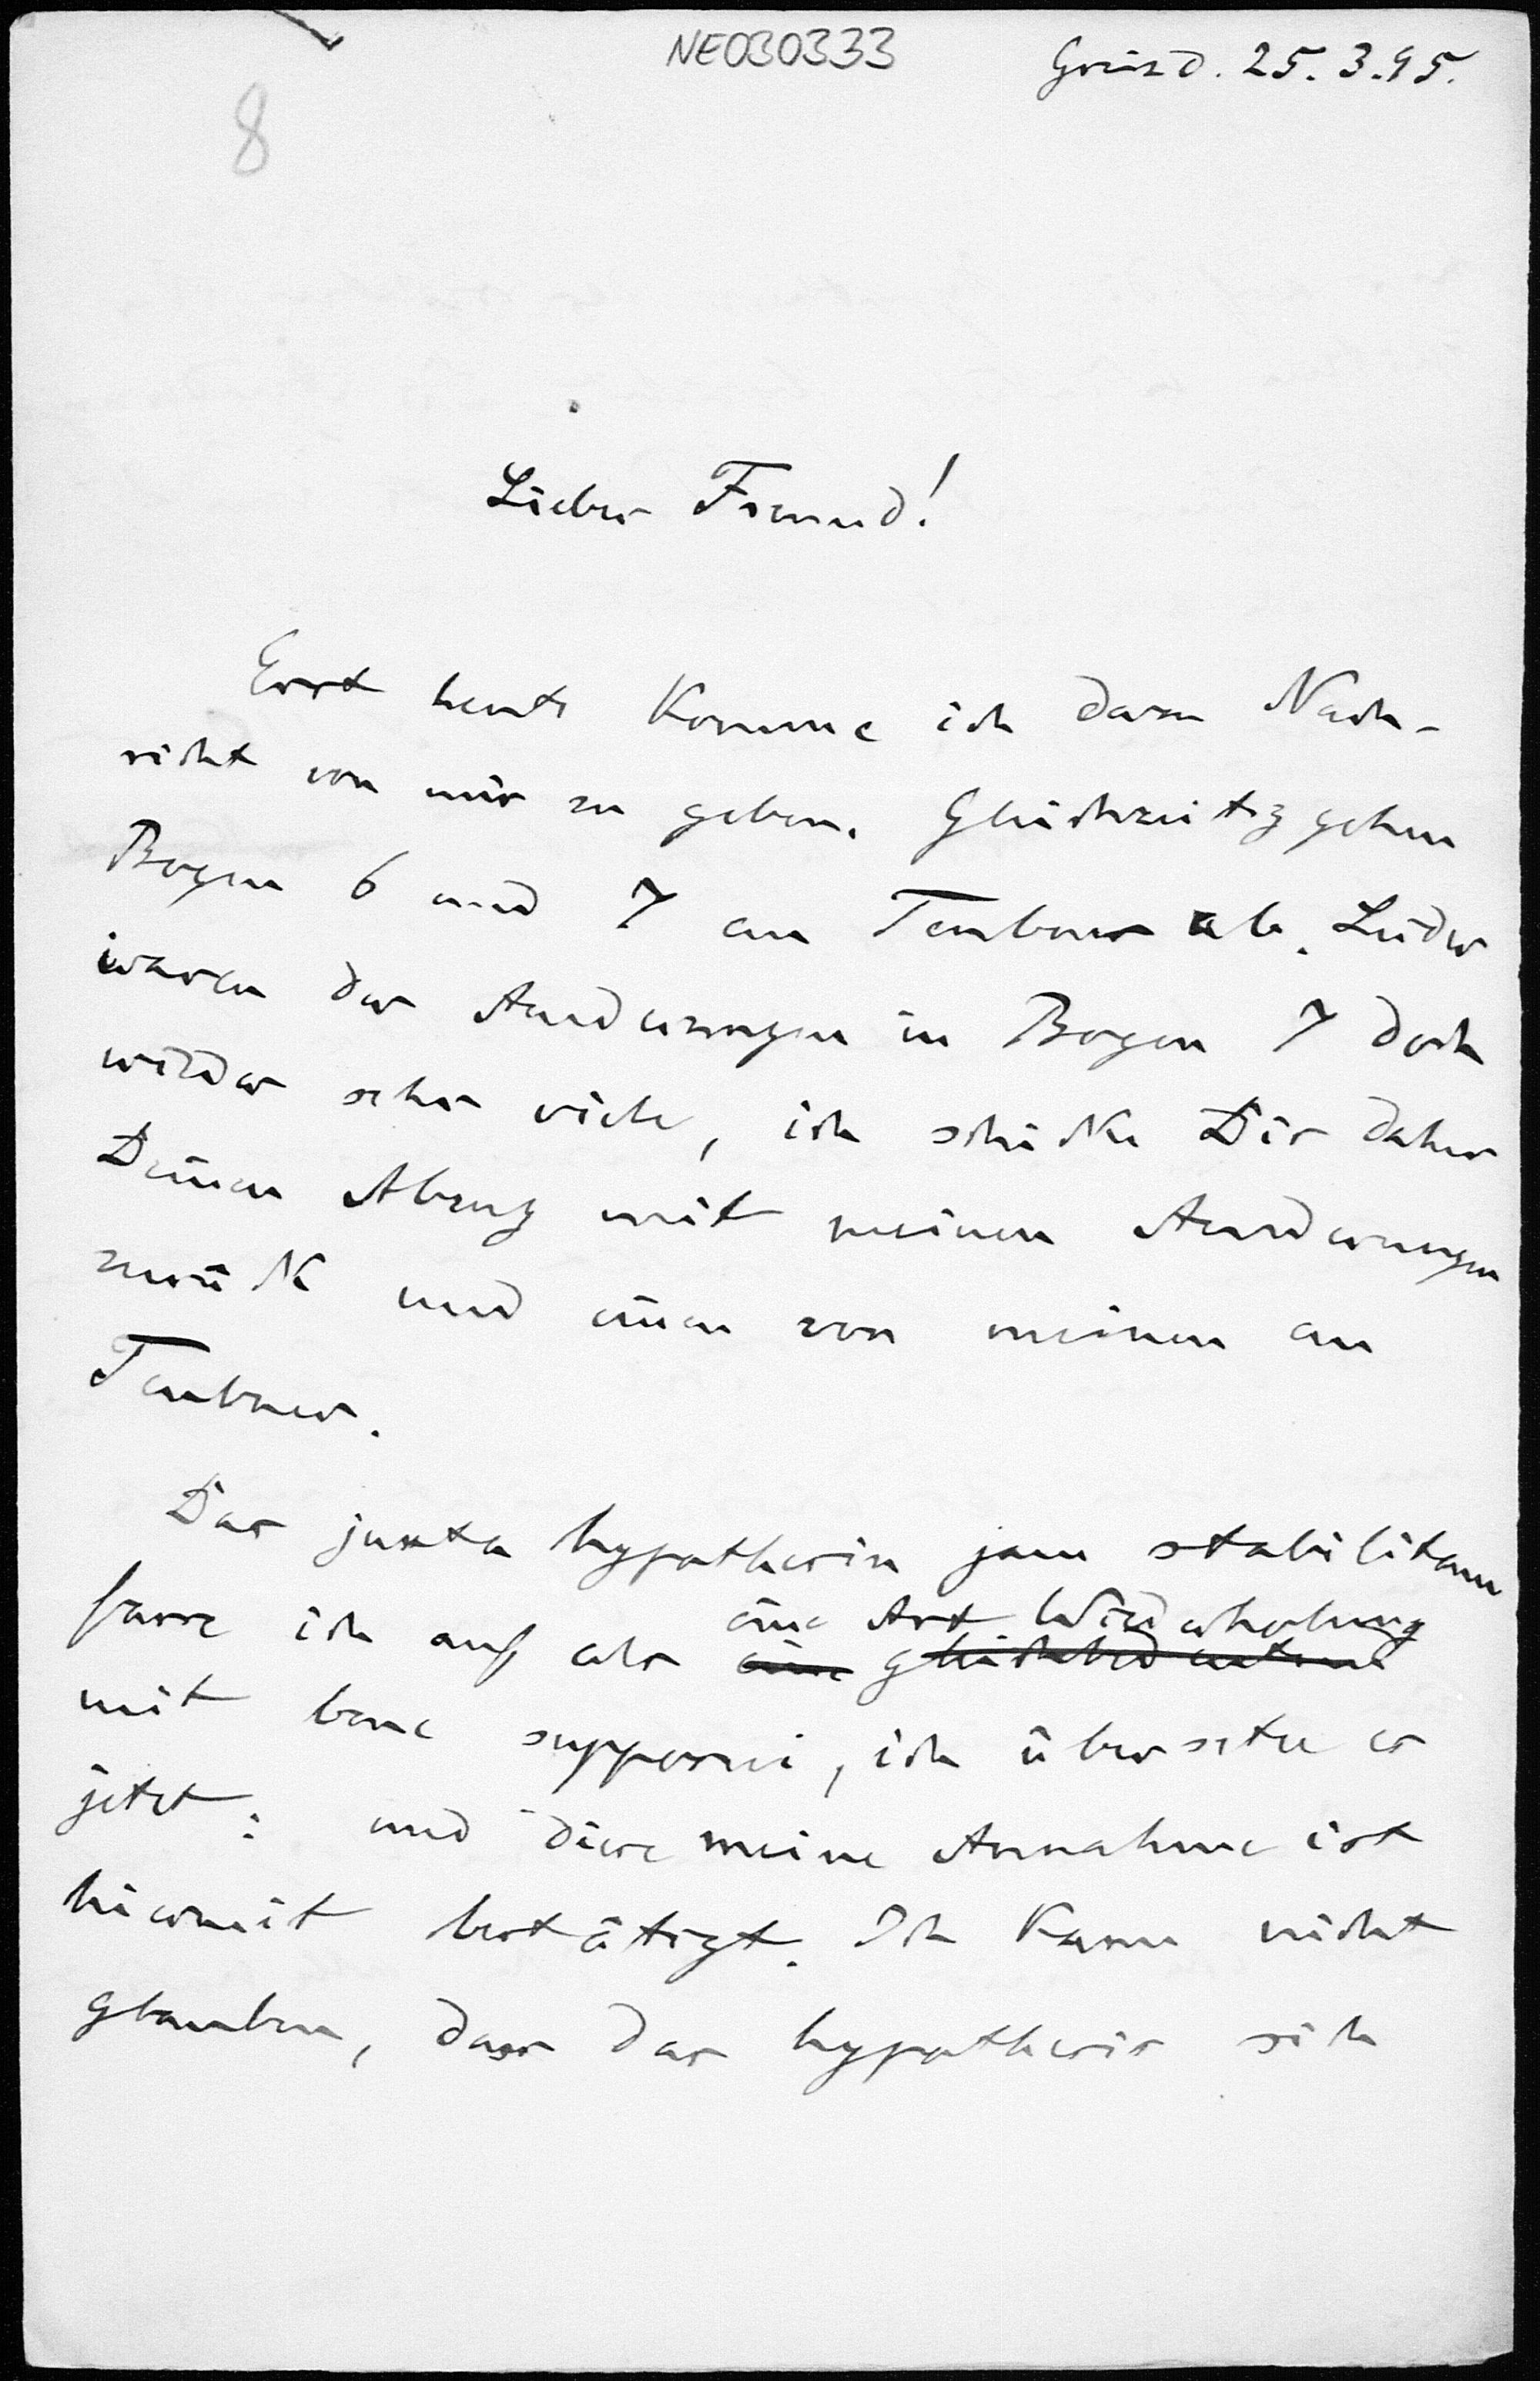 NE030333
Greiz d. 25.3.95.
8
Lieber Freund!
Erst heute komme ich dazu Nach-
richt von mir zu geben. Gleichzeitig gehen
Bogen 6 und 7 an Teubner ab. Leider
waren der Aenderungen in Bogen 7 doch
wieder sehr viele, ich schicke Dir daher
Deinen Abzug mit meinen Aenderungen
zurück und einen von meinen an
Teubner.
Das juxta hypothesin jam stabilitam
fasse ich auf als eine gleichbedeutend eine Art Wiederholung
mit bene supposui, ich übersetze es
jetzt: und diese meine Annahme ist
hiermit bestätigt. Ich kann nicht
glauben, dass das hypothesis sich